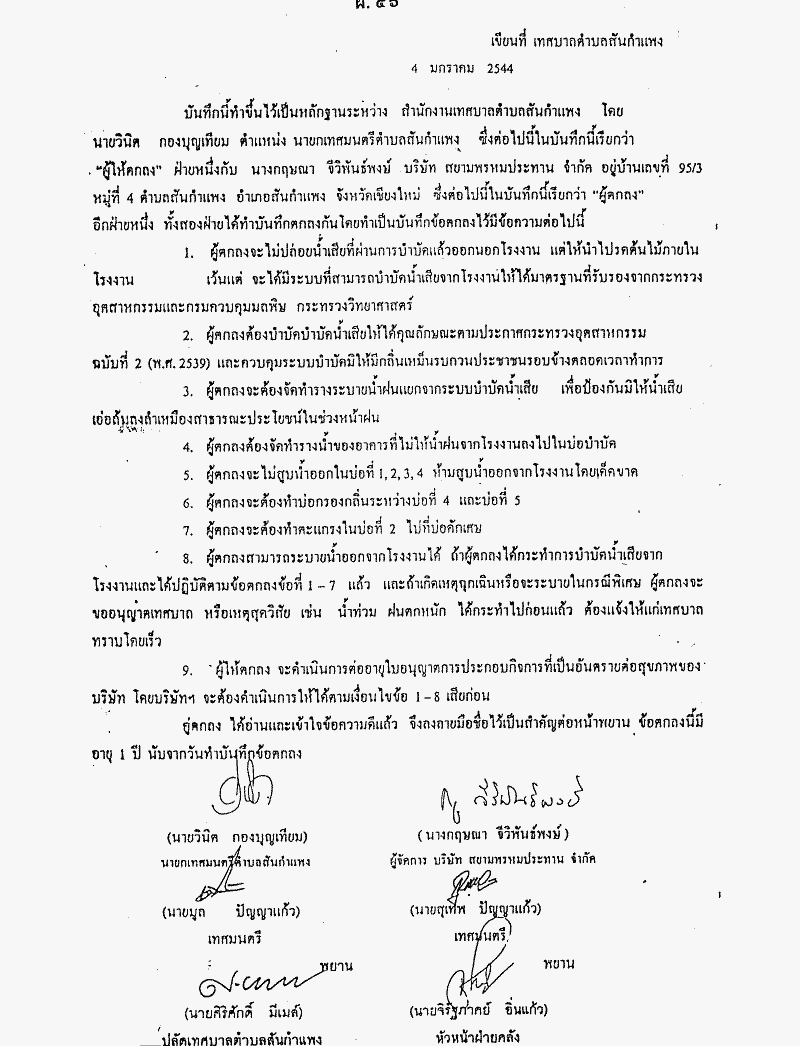 ผ. ๕๖
เขียนที่ เทศบาลตำบลสันกำแพง
4 มกราคม 2544
บันทึกนี้ทำขึ้นไว้เป็นหลักฐานระหว่าง สำนักงานเทศบาลตำบลสันกำแพง โดย
นายวินิต กองบุญเทียม ตำแหน่ง นายกเทศมนตรีตำบลสันกำแพง ซึ่งต่อไปนี้ในบันทึกนี้เรียกว่า
“ผู้ให้ตกลง” ฝ่ายหนึ่งกับ นางกฤษณา จีวิพันธ์พงษ์ บริษัท สยามพรหมประทาน จำกัด อยู่บ้านเลขที่ 95/3
หมู่ที่ 4 ตำบลสันกำแพง อำเภอสันกำแพง จังหวัดเชียงใหม่ ซึ่งต่อไปนี้ในบันทึกนี้เรียกว่า “ผู้ตกลง”
อีกฝ่ายหนึ่ง ทั้งสองฝ่ายได้ทำบันทึกตกลงกันโดยทำเป็นบันทึกข้อตกลงไว้มีข้อความต่อไปนี้
1. ผู้ตกลงจะไม่ปล่อยน้ำเสียที่ผ่านการบำบัดแล้วออกนอกโรงงาน แต่ให้นำไปรดต้นไม้ภายใน
โรงงาน เว้นแต่ จะได้มีระบบที่สามารถบำบัดน้ำเสียจากโรงงานให้ได้มาตรฐานที่รับรองจากกระทรวง
อุตสาหกรรมและกรมควบคุมมลพิษ กระทรวงวิทยาศาสตร์
2. ผู้ตกลงต้องบำบัดบำบัดน้ำเสียให้ได้คุณลักษณะตามประกาศกระทรวงอุตสาหกรรม
ฉบับที่ 2 (พ.ศ. 2539) และควบคุมระบบบำบัดมิให้มีกลิ่นเหม็นรบกวนประชาชนรอบข้างตลอดเวลาทำการ
3. ผู้ตกลงจะต้องจัดทำรางระบายน้ำฝนแยกจากระบบบำบัดน้ำเสีย เพื่อป้องกันมิให้น้ำเสีย
เอ่อล้นลงลำเหมืองสาธารณะประโยชน์ในช่วงหน้าฝน
4. ผู้ตกลงต้องจัดทำรางน้ำของอาคารที่ไม่ให้น้ำฝนจากโรงงานลงไปในบ่อบำบัด
5. ผู้ตกลงจะไม่สูบน้ำออกในบ่อที่ 1, 2, 3, 4 ห้ามสูบน้ำออกจากโรงงานโดยเด็ดขาด
6. ผู้ตกลงจะต้องทำบ่อกรองกลิ่นระหว่างบ่อที่ 4 และบ่อที่ 5
7. ผู้ตกลงจะต้องทำตะแกรงในบ่อที่ 2 ไปที่บ่อดักเศษ
8. ผู้ตกลงสามารถระบายน้ำออกจากโรงงานได้ ถ้าผู้ตกลงได้กระทำการบำบัดน้ำเสียจาก
โรงงานและได้ปฏิบัติตามข้อตกลงข้อที่ 1 – 7 แล้ว และถ้าเกิดเหตุฉุกเฉินหรือจะระบายในกรณีพิเศษ ผู้ตกลงจะ
ขออนุญาตเทศบาล หรือเหตุสุดวิสัย เช่น น้ำท่วม ฝนตกหนัก ได้กระทำไปก่อนแล้ว ต้องแจ้งให้แก่เทศบาล
ทราบโดยเร็ว
9. ผู้ให้ตกลง จะดำเนินการต่ออายุใบอนุญาตการประกอบกิจการที่เป็นอันตรายต่อสุขภาพของ
บริษัท โดยบริษัทฯ จะต้องดำเนินการให้ได้ตามเงื่อนไขข้อ 1 – 8 เสียก่อน
คู่ตกลง ได้อ่านและเข้าใจข้อความดีแล้ว จึงลงลายมือชื่อไว้เป็นสำคัญต่อหน้าพยาน ข้อตกลงนี้มี
อายุ 1 ปี นับจากวันทำบันทึกข้อตกลง
(นายวินิต กองบุญเทียม) (นางกฤษณา จีวิพันธ์พงษ์)
นายกเทศมนตรีตำบลสันกำแพง ผู้จัดการ บริษัท สยามพรหมประทาน จำกัด
(นายมูล ปัญญาแก้ว) (นายสุเทพ ปัญญาแก้ว)
เทศมนตรี เทศมนตรี
พยาน พยาน
(นายศิริศักดิ์ มีเมล์) (นายจิรัฐภาคย์ อิ่นแก้ว)
ปลัดเทศบาลตำบลสันกำแพง หัวหน้าฝ่ายคลัง